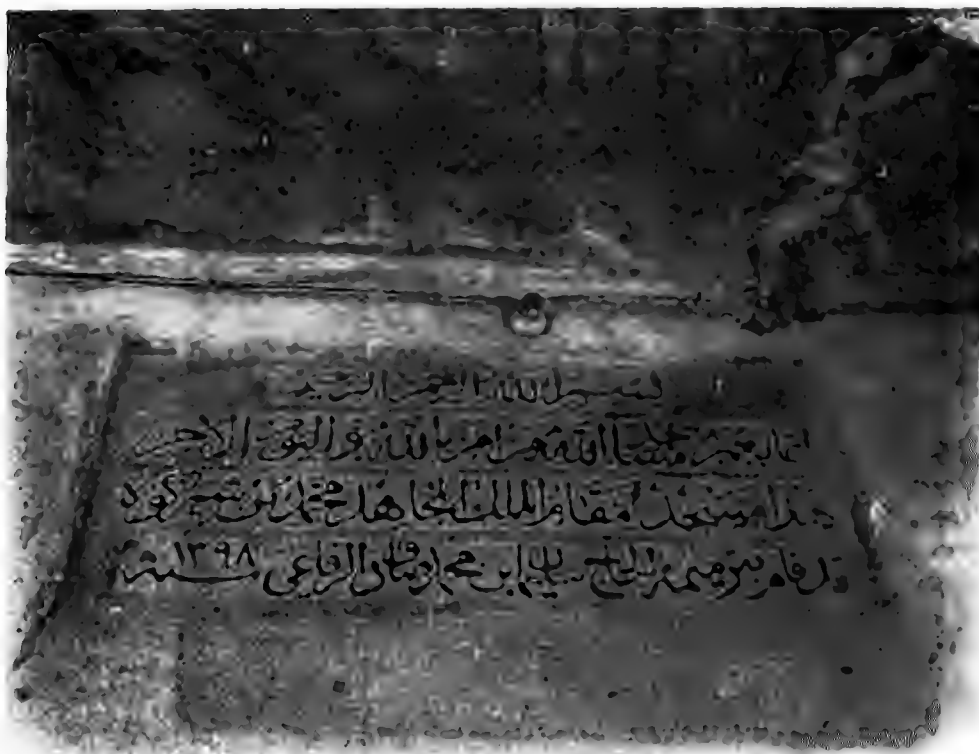 بسم الله الرحمن الرحيم
انما يعمر مساجد الله من امن بالله واليوم الاخر
هذا مسجد مقام الملك المجاهد محمد بن شيركوه
قد قام بترميمه الحاج ابن محمد الرفاعي سنة ١٣٩٨